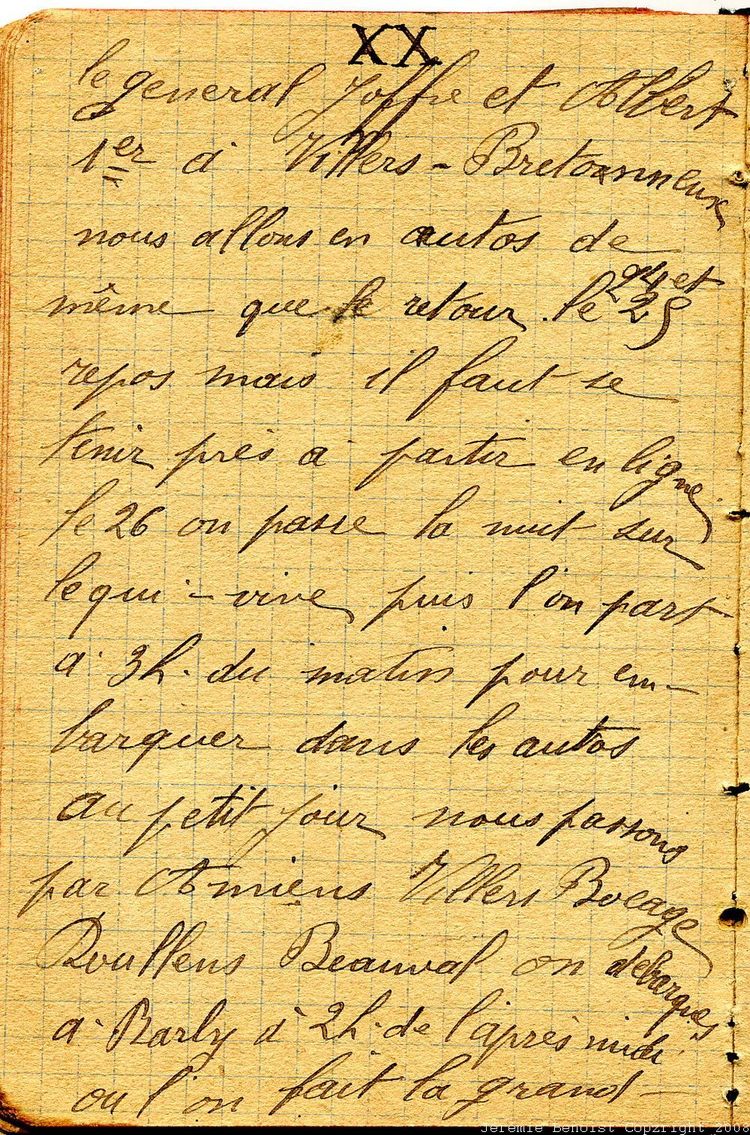 XX
le general Joffre et Albert
1er à Villers-Bretonneux
nous allons en autos de
même que le retour. le 24 et 25
repos mais il faut se
tenir près à partir en ligne
le 26 on passe la nuit sur
le qui-vive, puis l'on part
a 3h. du matin pour em-
barquer dans les autos
au petit jour nous passons
par Amiens Villers Bocage
Doullens Beauval on debarque
a Barly à 2h. de l'après midi
ou l'on fait la grand-
Jeremie Benoist Copyright 2008